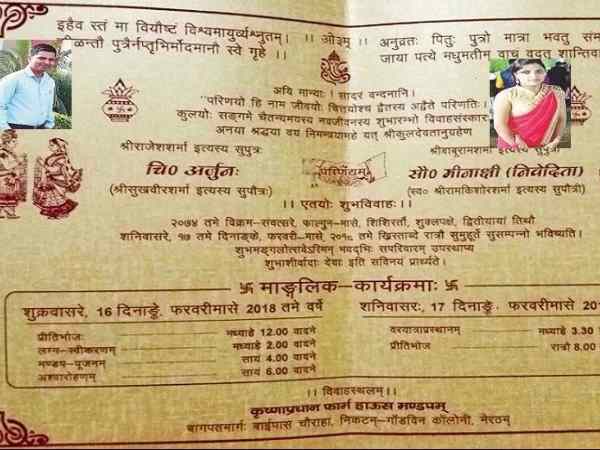 इहैव स्तं मा वियौष्टं विश्वमायुर्व्यश्नुतम्। ।। ओ३म् ।। अनुव्रतः पितुः पुत्रो मात्रा भवतु
पुत्रैर्नप्तृभिर्मोदमानौ स्वे गृहे ।। जाया पत्ये मधुमतीम् वाचं वदतु
अयि मान्याः ! सादरं वन्दनानि।
"परिणयो हि नाम जीवयोः चित्तयोश्च द्वैतस्य अद्वैते परिणतिः।
कुलयोः सङ्गमे चैतन्यमयस्य नवजीवनस्य शुभारम्भो विवाहसंस्कारः
अनया श्रद्धया वयं निमन्त्रयामहे यत् श्रीकुलदेवतानुग्रहेण
श्रीराजेशशर्मा इत्यस्य सुपुत्रः श्रीबाबूरामशर्मा इत्यस्य सुपुत्री
चि० अर्जुनः परिणयम् सौ० मीनाक्षी (निवेदिता)
(श्रीसुखवीरशर्मा इत्यस्य सुपौत्रः) (स्व० श्रीरामकिशोरशर्मा इत्यस्य सुपौत्री)
।। एतयोः शुभविवाहः ।।
२०७४ तमे विक्रम-संवत्सरे, फाल्गुन-मासे, शिशिरर्तौ, शुक्लपक्षे, द्वितीयायां तिथौ
शनिवासरे, १७ तमे दिनाङ्के, फरवरी-मासे, २०१८ तमे ख्रिस्ताब्दे रात्रौ सुमुहूर्ते सुसम्पन्नो भविष्यति।
शुभमङ्गलोत्सवेऽस्मिन् भवद्भिः सपरिवारम् उपस्थाप्य
शुभाशीर्वादाः देयाः इति सविनयं प्रार्थ्यते।
卐 माङ्गलिक-कार्यक्रमाः 卐
शुक्रवासरे, 16 दिनाङ्के, फरवरीमासे 2018 तमे वर्षे शनिवासरः, 17 दिनाङ्के, फरवरीमासे
प्रीतिभोजः मध्याह्ने 12.00 वादने वरयात्राप्रस्थानम् मध्याह्ने 3.30
लग्न-स्वीकरणम् मध्याह्ने 2.00 वादने प्रीतिभोज रात्रौ
मण्डप-पूजनम् सायं 4.00 वादने
अश्वारोहणम् सायं 6.00 वादने
।। विवाहस्थलम् ।।
कृष्णाप्रधान फार्म हाऊस मण्डपम्
बागपतमार्गः बाईपास चौराहा, निकटम्-गॉडविन कॉलोनी, मेरठम्